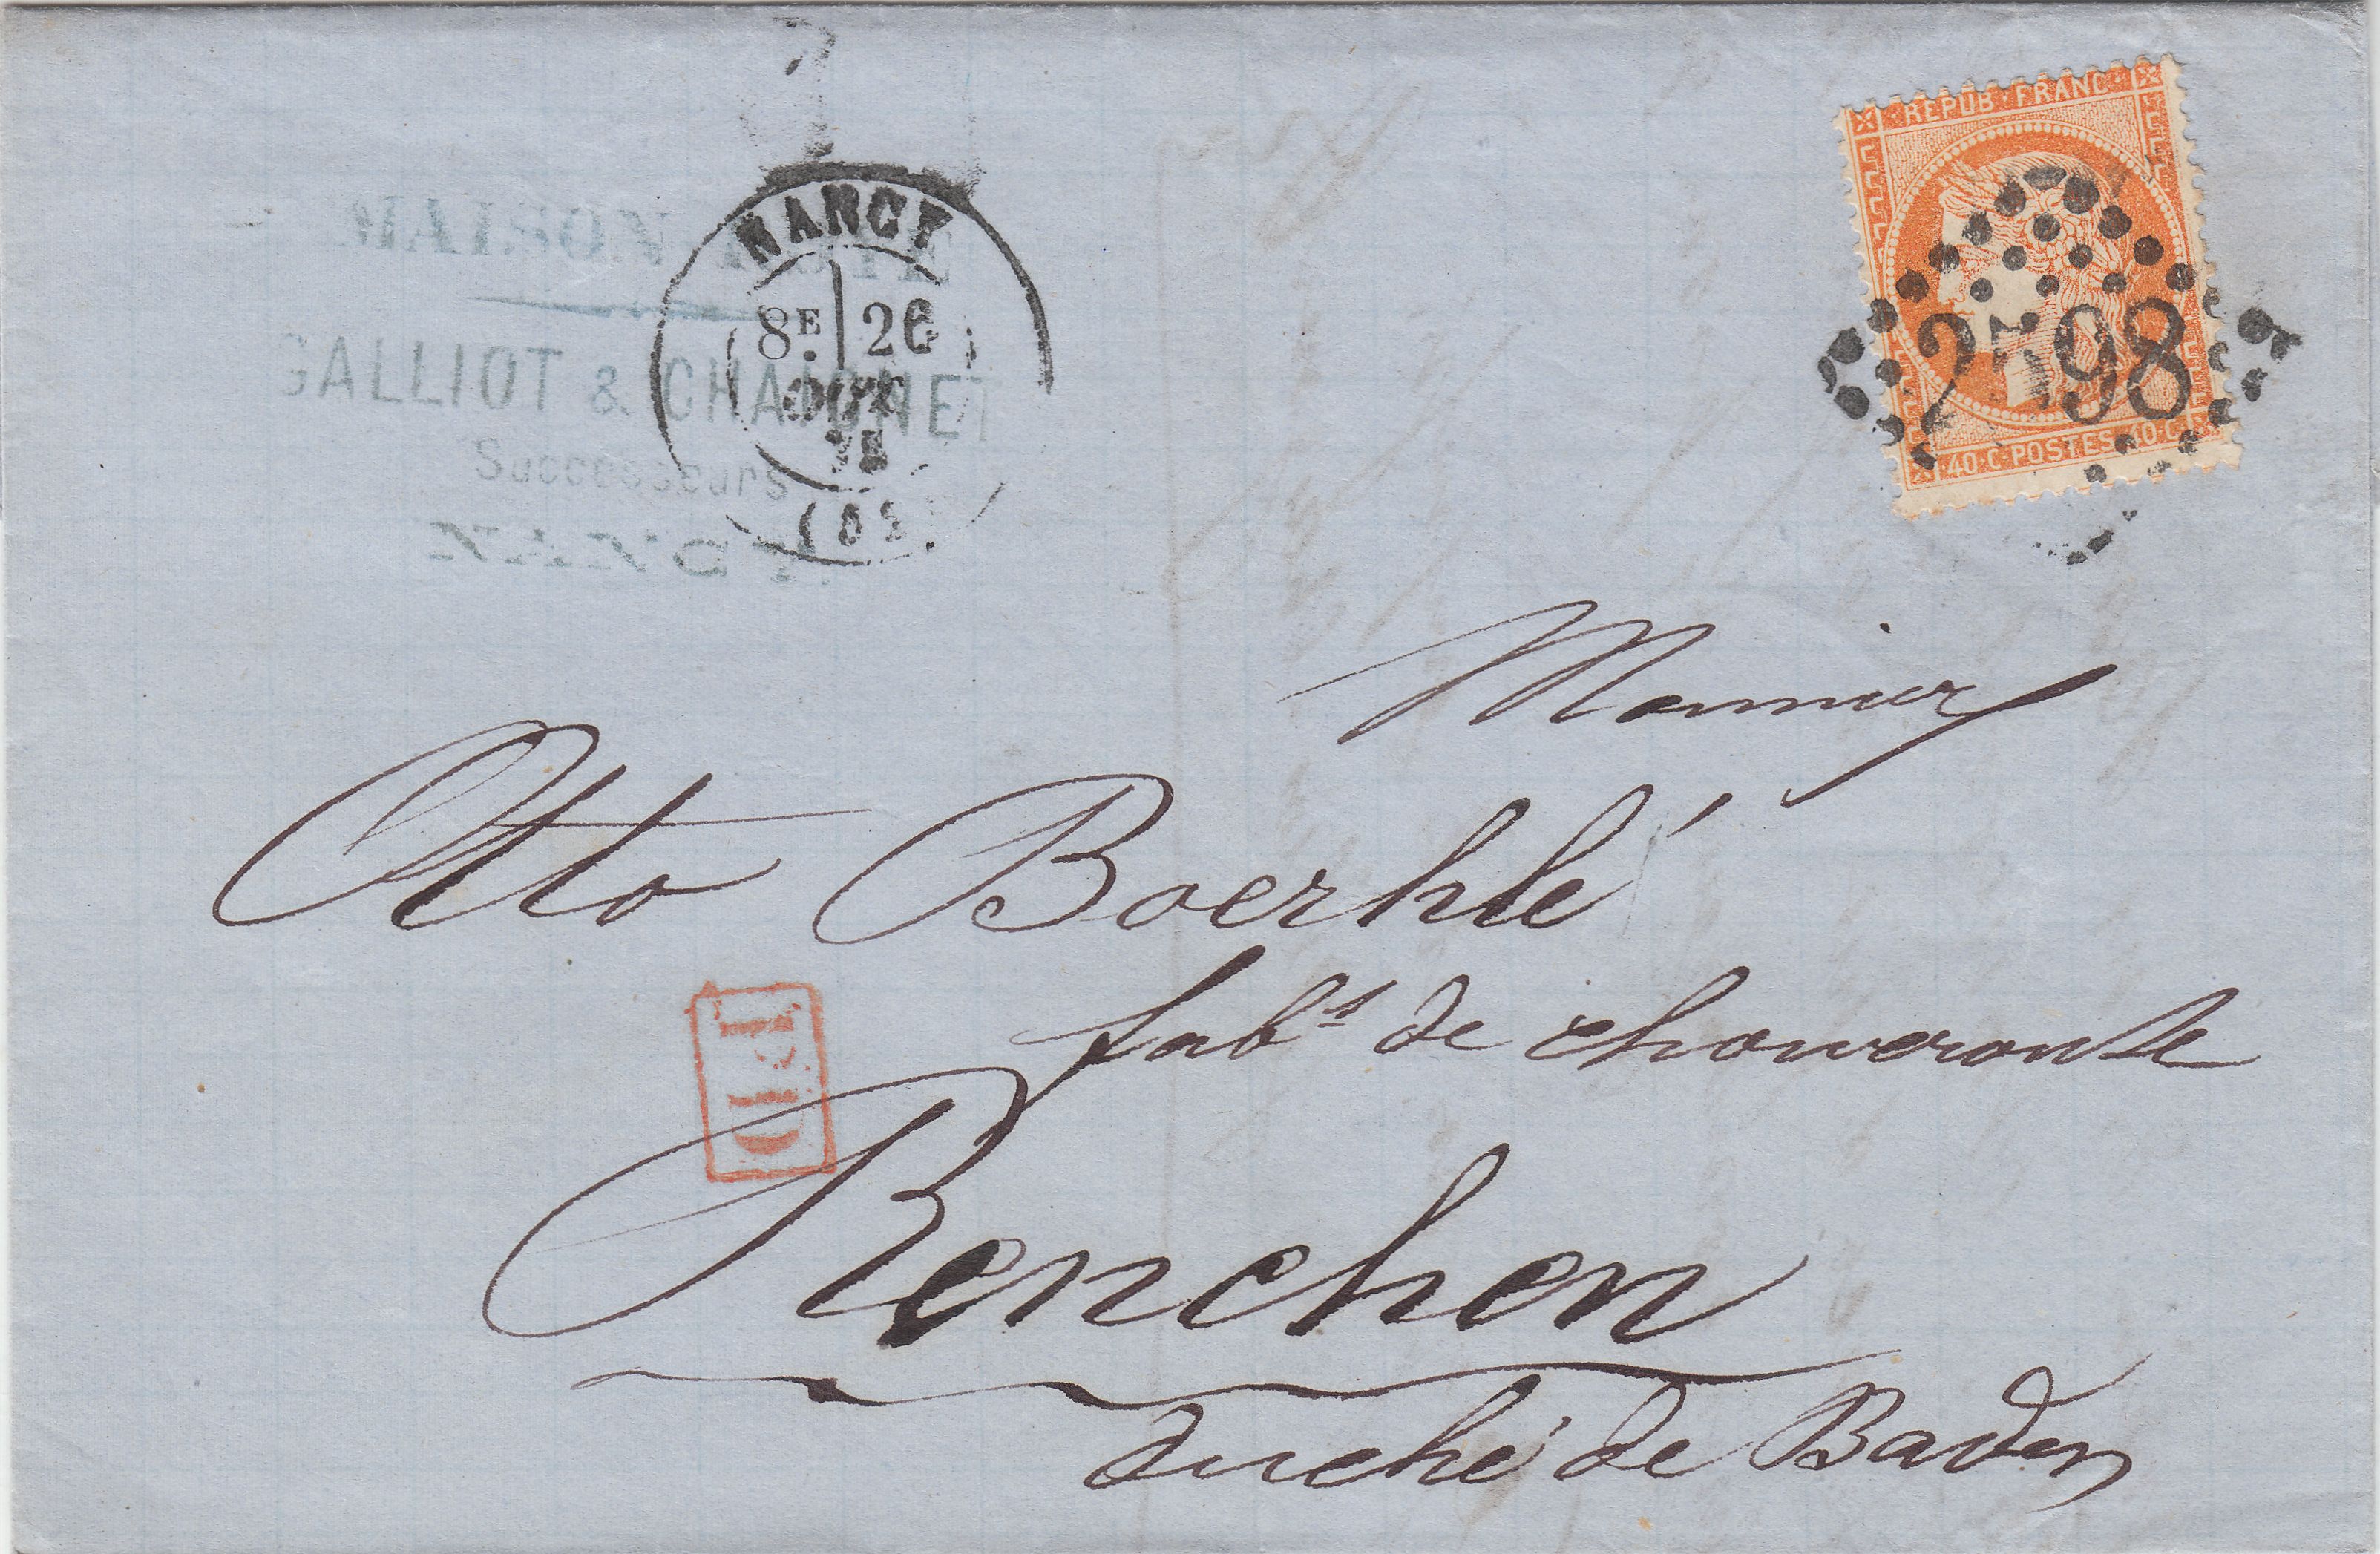 MAISON
GALLIOT & CHAIGNET
Successeurs
NANCY
NANCY
8E 26
(52)
REPUB·FRANC·
2598
·40·C·POSTES·40·C·
Monsieur
Otto Boerhlé
fabt de chouveroute
Renchen
duché de Baden
P.D.